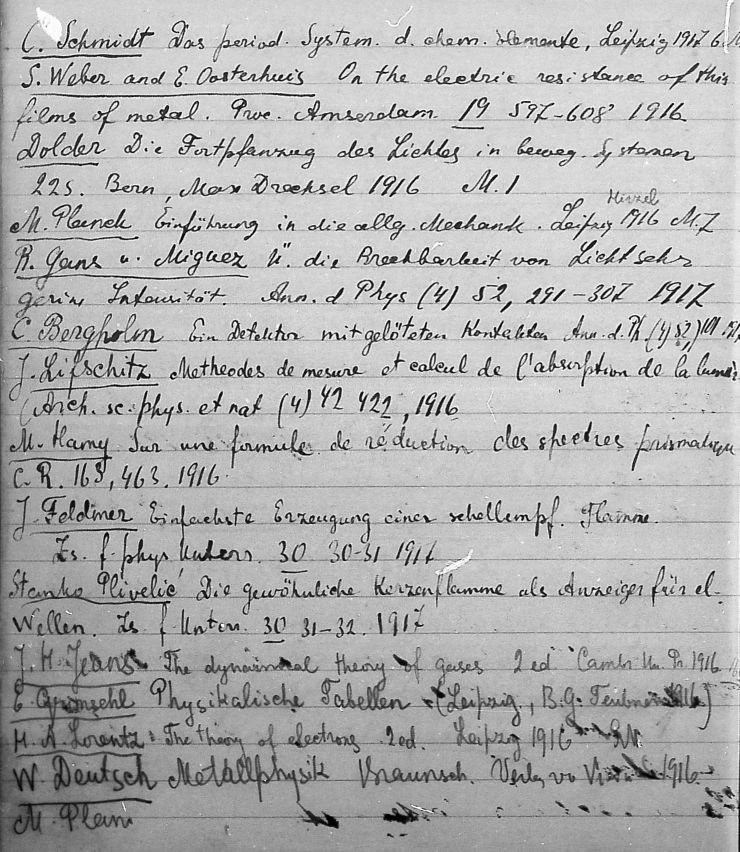 C. Schmidt Das period. System. d. chem. Elemente, Leipzig 1917 6
S. Weber and E. Oosterhuis On the electric resistance of thin
films of metal. Proc. Amserdam. 19 597-608 1916
Dolder Die Fortpfanzug des Lichtes in beweg. Systemen
225. Bern, Max Drechsel 1916 M. 1
Hirzel
M. Planck Einführung in die allg. Mechanik. Leipzig 1916 M. 7
R. Gans u. Miguez Ü. die Brechbarkeit von Licht sehr
gering Intensität. Ann. d Phys (4) 52, 291-307 1917
C. Bergholm Ein Detektor mit gelöteten Kontakten Ann. d. Ph. (4)
J. Lifschitz Metheodes de mesure et calcul de l'absorption de la
(Arch. sc. phys. et nat (4) 42 422, 1916
M. Hamy Sur une formule de réduction des spectres prismatique
C. R. 163, 463. 1916.
J. Feldmer Einfachste Erzeugung einer schallempf. Flamme.
Zs. f. phys. Unterr. 30 30-31 1917
Stanko Plivelić Die gewöhnliche Kerzenflamme als Anzeiger für el.
Wellen. Zs f Unterr. 30 31-32. 1917
J. H. Jeans The dynamical theory of gases 2 ed Cambr Un. Pr. 1916
E. Grimsehl Physikalische Tabellen (Leipzig, B. G. Teubner 1916)
H. A. Lorentz: The theory of electrons 2ed. Leipzig 1916
W. Deutsch Metallphysik Braunsch. Verlag 1916
M. Plan